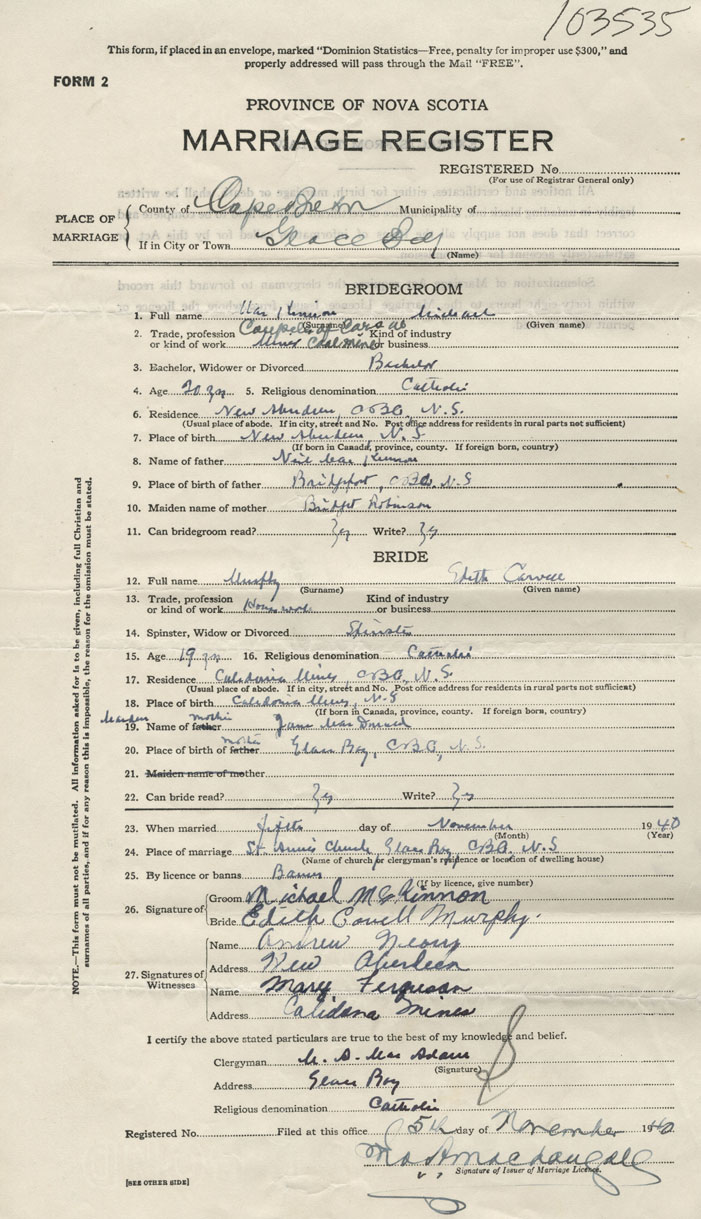 103535
This form, if placed in an envelope, marked "Dominion Statistics—Free, penalty for improper use $300," and
properly addressed will pass through the Mail "FREE".
FORM 2
PROVINCE OF NOVA SCOTIA
MARRIAGE REGISTER
REGISTERED No.
(For use of Registrar General only)
PLACE OF MARRIAGE
County of Cape Breton Municipality of
If in City or Town Glace Bay
(Name)
BRIDEGROOM
1. Full name MacKinnon Michael
(Surname) (Given name)
2. Trade, profession Kind of industry
or kind of work Miner Coal mine or business
3. Bachelor, Widower or Divorced Bachelor
4. Age 20 yrs 5. Religious denomination Catholic
6. Residence New Aberdeen, C.B.Co., N.S.
(Usual place of abode. If in city, street and No. Post office address for residents in rural parts not sufficient)
7. Place of birth New Aberdeen, N.S
(If born in Canada, province, county. If foreign born, country)
8. Name of father Neil MacKinnon
9. Place of birth of father Bridgeport, C.B.Co., N.S
10. Maiden name of mother Bridget Robinson
11. Can bridegroom read? Yes Write? Yes
BRIDE
12. Full name Murphy Edith
(Surname) (Given name)
13. Trade, profession Kind of industry
or kind of work Housework or business
14. Spinster, Widow or Divorced Spinster
15. Age 19 yrs 16. Religious denomination Catholic
17. Residence Caledonia Mines, C.B.Co., N.S.
(Usual place of abode. If in city, street and No. Post office address for residents in rural parts not sufficient)
18. Place of birth Caledonia Mines, N.S
(If born in Canada, province, county. If foreign born, country)
Maiden mother
19. Name of father Jane MacDonald
mother
20. Place of birth of father Glace Bay, C.B.Co., N.S.
21. Maiden name of mother
22. Can bride read? Yes Write? Yes
23. When married fifth day of November 1940
(Month) (Year)
24. Place of marriage St. Anne's Church, Glace Bay, C.B.Co., N.S
(Name of church or clergyman's residence or location of dwelling house)
25. By licence or banns Banns
(If by licence, give number)
26. Signature of
Groom Michael McKinnon
Bride Edith Covell Murphy.
27. Signatures of Witnesses
Name Andrew
Address New Aberdeen
Name Mary Ferguson
Address Calidona Mines
I certify the above stated particulars are true to the best of my knowledge and belief.
Clergyman M. A. MacAdam
(Signature)
Address Glace Bay
Religious denomination Catholic
Registered No. Filed at this office 5th day of November 1940
MacDougall
Signature of Issuer of Marriage Licence.
[SEE OTHER SIDE]
NOTE.—This form must not be mutilated. All information asked for is to be given, including full Christian and
surnames of all parties, and if for any reason this is impossible, the reason for the omission must be stated.